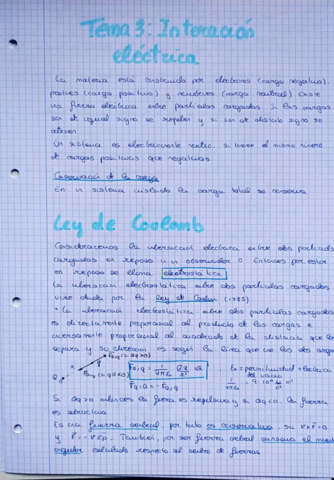 Tema 3: Interacción
eléctrica
La materia está constituida por electrones (carga negativa),
protones (carga positiva) y neutrones (carga neutral) Existe
una fuerza eléctrica entre partículas cargadas: Si las cargas
son de igual signo se repelen y si son de distinto signo se
atraen
Un sistema es eléctricamente neutro, si tiene el mismo número
de cargas positivas que negativas
Conservación de la carga
En un sistema aislado la carga total se conserva
Ley de Coulomb
Consideraremos la interacción eléctrica entre dos partículas
cargadas en reposo un observador O Entonces por estar
en reposo se llama electrostática
La interacción electrostática entre dos partículas cargadas
viene dada por la Ley de Coulomb (1785)
• La interacción electrostática entre dos partículas cargadas
es directamente proporcional al producto de las cargas e
inversamente proporcional al cuadrado de la distancia que las
separa y su dirección es según la línea que une las dos cargas
Si Qq>0 entonces la fuerza es repulsiva y si Qq<0, la fuerza
es atractiva
Es una fuerza central, por tanto es conservativa, su ∇×F=0
y F=-∇Ep. También, por ser fuerza central conserva el mom
angular calculado respecto al centro de fuerzas